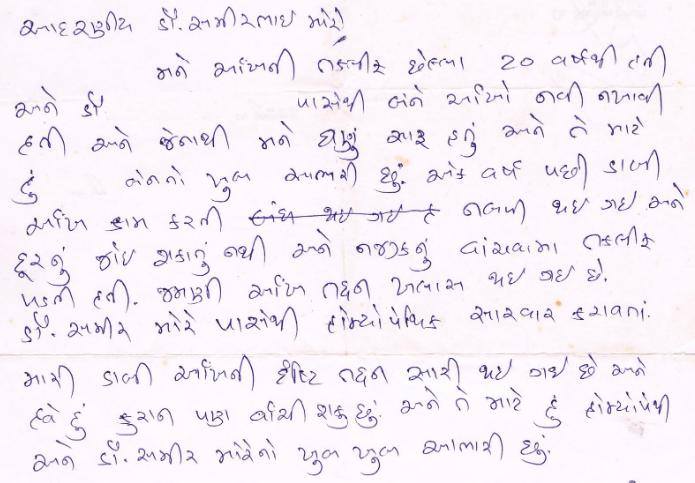 આદરણીય ડૉ. સમીરભાઇ મોરે
મને આંખની તકલીફ છેલ્લા 20 વર્ષથી હતી
અને ડૉ પાસેથી બંને આંખો નવી નખાવી
હતી અને જેનાથી મને ઘણું સારૂ હતું અને તે માટે
હું બેનનો ખુબ આભારી છું. એક વર્ષ પછી ડાબી
આંખ કામ કરતી બંધ થઇ ગઇ હ નબળી થઇ ગઇ અને
દૂરનું જોઇ શકાતું નથી અને નજીકનું વાંચવામા તકલીફ
પડતી હતી. જમણી આંખ તદ્દન ખલાસ થઇ ગઇ છે.
ડૉ. સમીર મોરે પાસેથી હોમ્યોપેથિક સારવાર કરાવતાં.
મારી ડાબી આંખની દ્રષ્ટિ તદ્દન સારી થઇ ગઇ છે અને
હવે હું કુરાન પણ વાંચી શકુ છું. અને તે માટે હું હોમ્યોપેથી
અને ડૉ. સમીર મોરેનો ખુબ ખુબ આભારી છું.